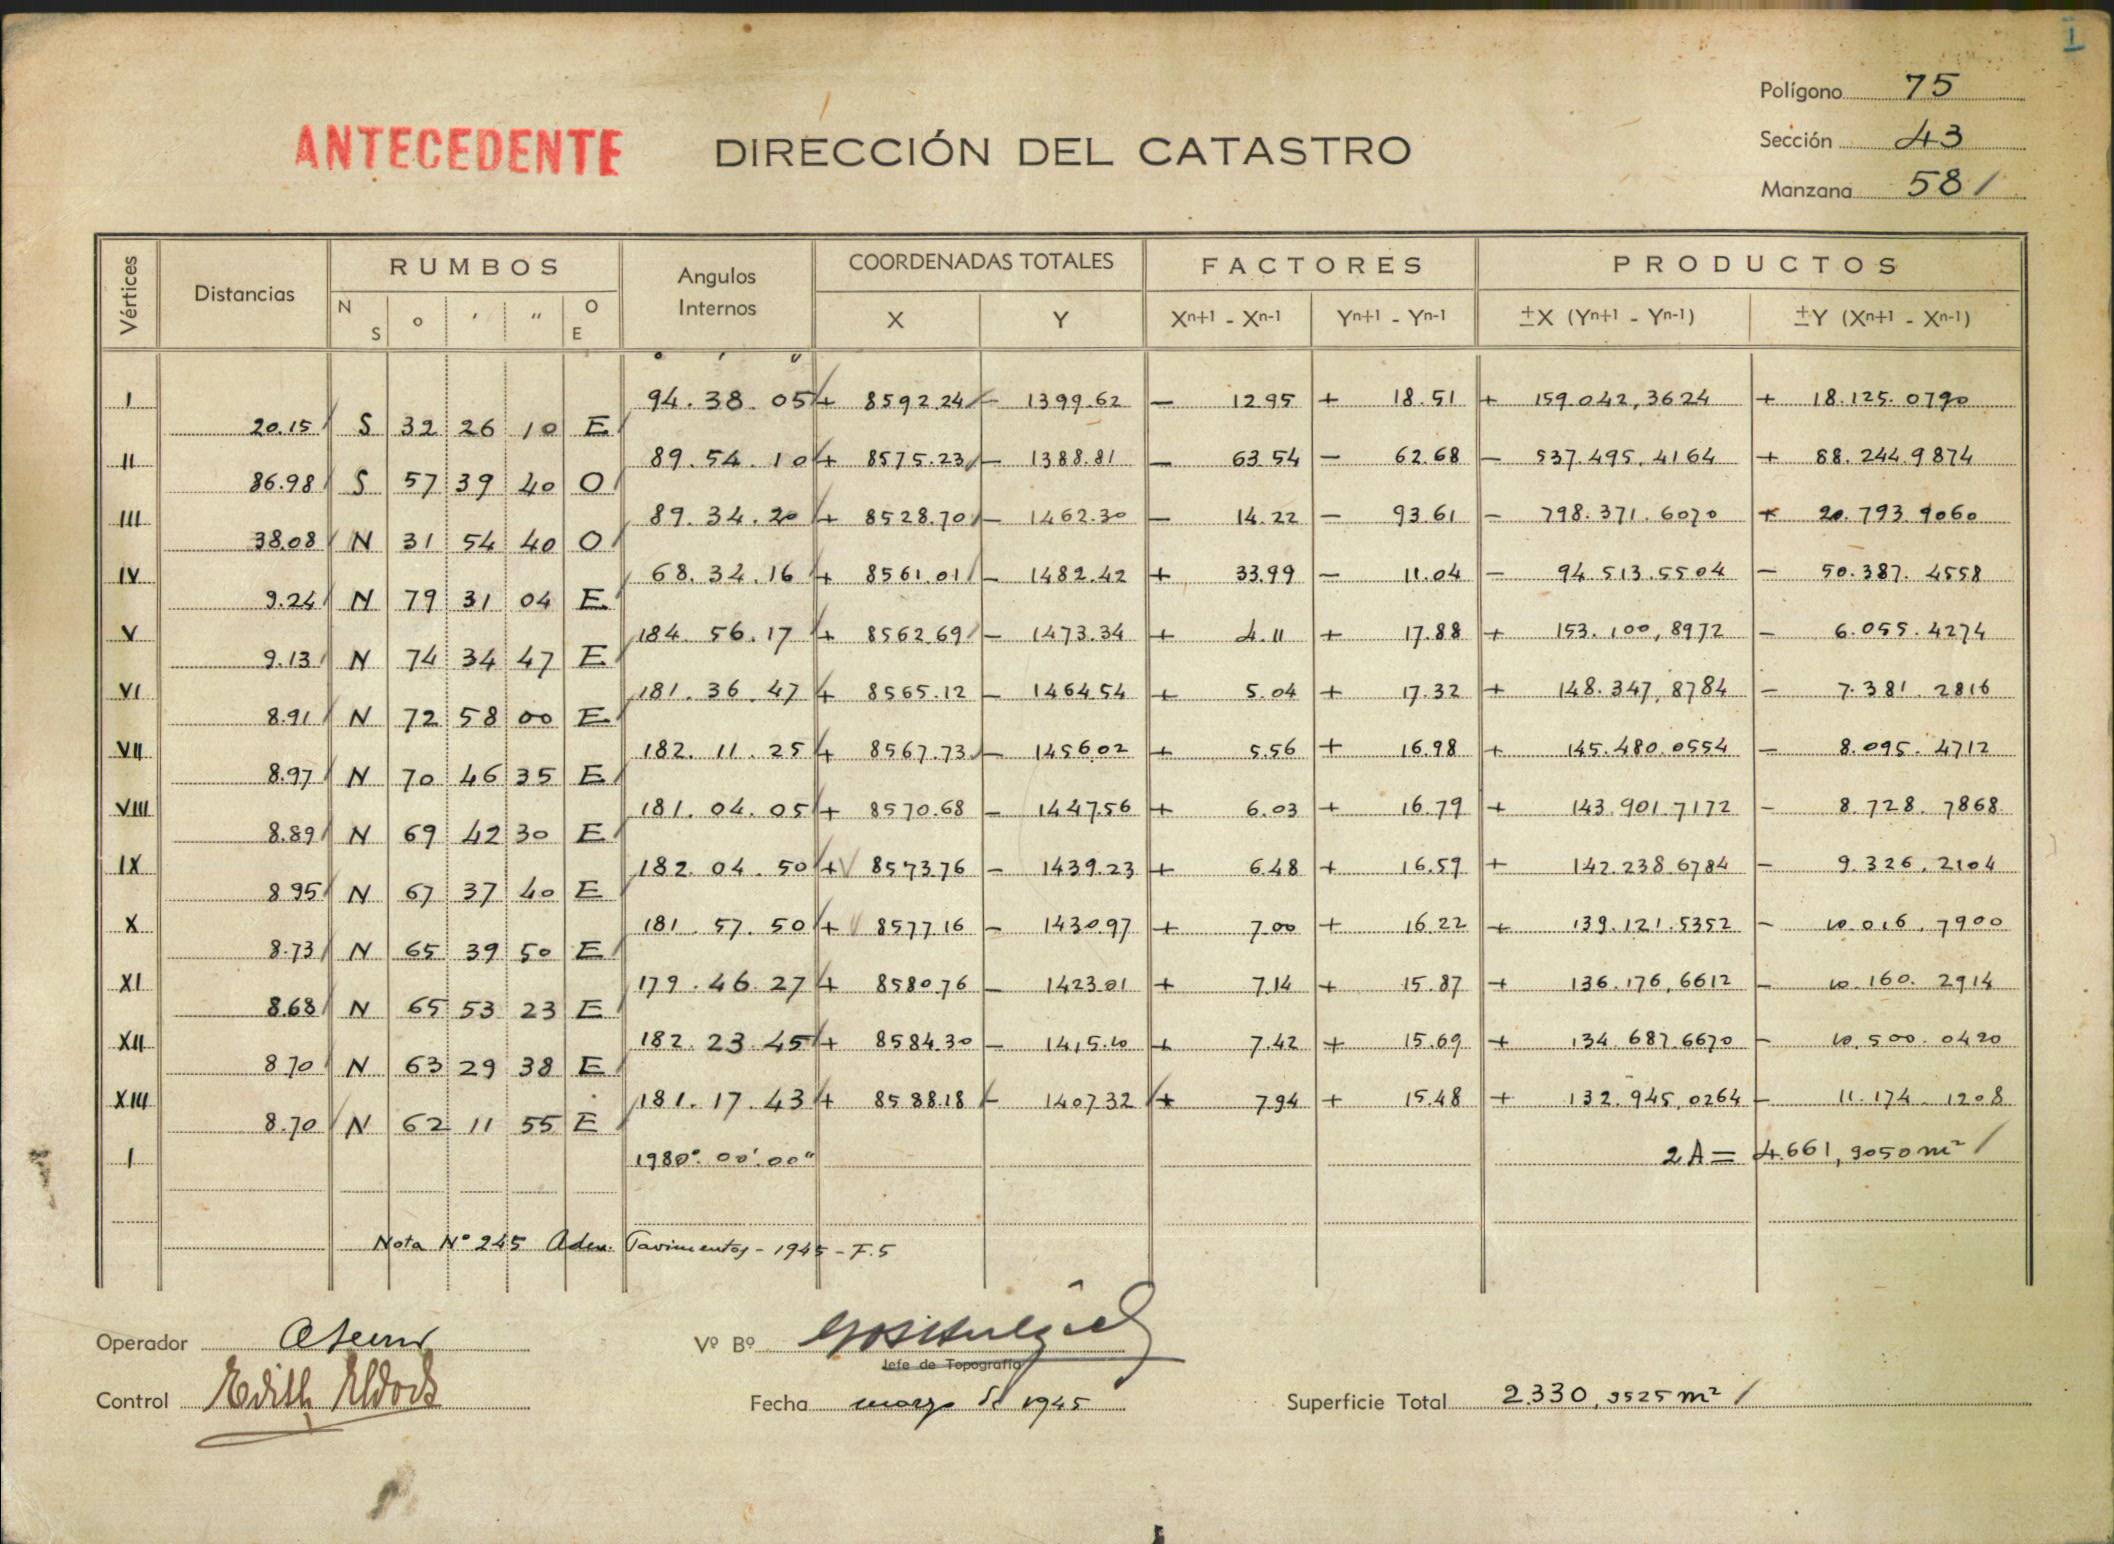 Polígono 75
ANTECEDENTE DIRECCIÓN DEL CATASTRO
Sección 43
Manzana 58
Vértices Distancias RUMBOS Angulos Internos COORDENADAS TOTALES FACTORES PRODUCTOS
N S ° ' " O E X Y Xn+1 - Xn-1 Yn+1 - Yn-1 ±X (Yn+1 - Yn-1) ±Y (Xn+1 - Xn-1)
° ' "
I 94. 38. 05 + 8592.24 - 1399.62 - 12.95 + 18.51 + 159.042,3624 + 18.125.0790
20.15 S 32 26 10 E
II 89. 54. 10 + 8575.23 - 1388.81 - 63.54 - 62.68 - 537.495.4164 + 88.244.9874
86.98 S 57 39 40 O
III 89. 34. 20 + 8528.70 - 1462.30 - 14.22 - 93.61 - 798.371.6070 + 20.793.9060
38.08 N 31 54 40 O
IV 68. 34. 16 + 8561.01 - 1482.42 + 33.99 - 11.04 - 94.513.5504 - 50.387.4558
9.24 N 79 31 04 E
V 184. 56. 17 + 8562.69 - 1473.34 + 4.11 + 17.88 + 153.100,8972 - 6.055.4274
9.13 N 74 34 47 E
VI 181. 36. 47 + 8565.12 - 1464.54 + 5.04 + 17.32 + 148.347,8784 - 7.381.2816
8.91 N 72 58 00 E
VII 182. 11. 25 + 8567.73 - 1456.02 + 5.56 + 16.98 + 145.480.0554 - 8.095.4712
8.97 N 70 46 35 E
VIII 181. 04. 05 + 8570.68 - 1447.56 + 6.03 + 16.79 + 143.901.7172 - 8.728.7868
8.89 N 69 42 30 E
IX 182. 04. 50 + 8573.76 - 1439.23 + 6.48 + 16.59 + 142.238.6784 - 9.326.2104
8.95 N 67 37 40 E
X 181. 57. 50 + 8577.16 - 1430.97 + 7.00 + 16.22 + 139.121.5352 - 10.016.7900
8.73 N 65 39 50 E
XI 179. 46. 27 + 8580.76 - 1423.01 + 7.14 + 15.87 + 136.176,6612 - 10.160.2914
8.68 N 65 53 23 E
XII 182. 23. 45 + 8584.30 - 1415.10 + 7.42 + 15.69 + 134.687.6670 - 10.500.0420
8.70 N 63 29 38 E
XIII 181. 17. 43 + 8588.18 - 1407.32 + 7.94 + 15.48 + 132.945,0264 - 11.174.1208
8.70 N 62 11 55 E
I 1980°. 00'. 00" 2A = 4.661,9050 m²
Nota Nº 245 Pavimentos - 1945 - F. 5
Operador Vº Bº
Jefe de Topografía
Control Edith Fecha marzo de 1945 Superficie Total 2.330,9525 m²